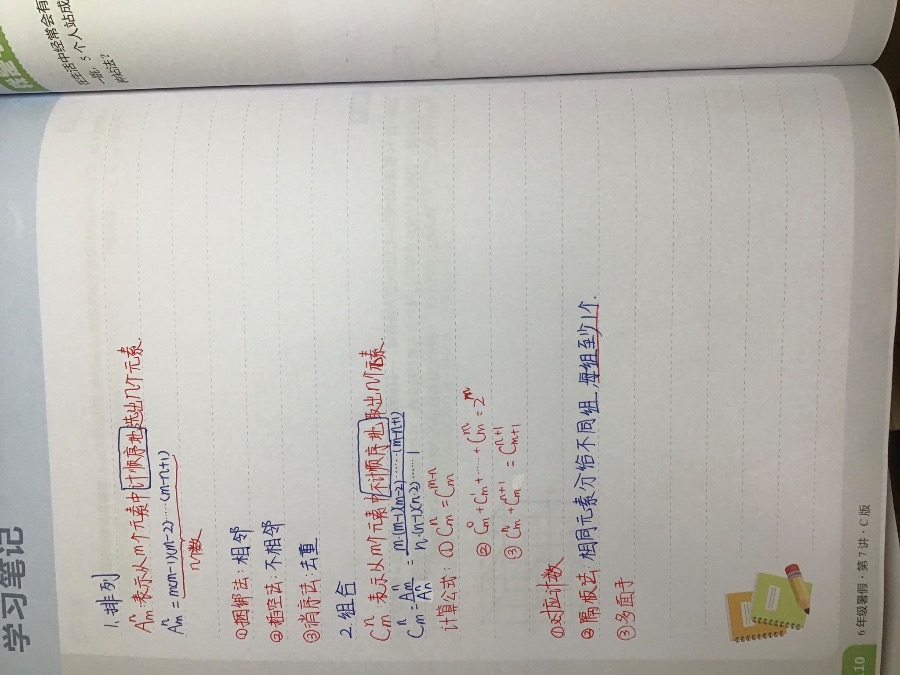 学习笔记
1. 排列
Aₘⁿ: 表示从m个元素中计顺序地选出n个元素.
Aₘⁿ = m(m-1)(m-2)……(m-n+1)
n个数
①捆绑法: 相邻
②插空法: 不相邻
③消序法: 去重
2. 组合
Cₘⁿ: 表示从m个元素中不计顺序地取出n个元素.
Cₘⁿ = Aₘⁿ/Aₙⁿ = m·(m-1)(m-2)……(m-n+1) / n·(n-1)(n-2)……1
计算公式: ① Cₘⁿ = Cₘᵐ⁻ⁿ
② Cₘ⁰ + Cₘ¹ + …… + Cₘᵐ = 2ᵐ
③ Cₘⁿ + Cₘⁿ⁺¹ = Cₘ₊₁ⁿ⁺¹
①对应计数
②隔板法: 相同元素分给不同组, 每组至少1个.
③多面手
10 6年级暑假·第7讲·C版
生活中经常会有
5个人站成